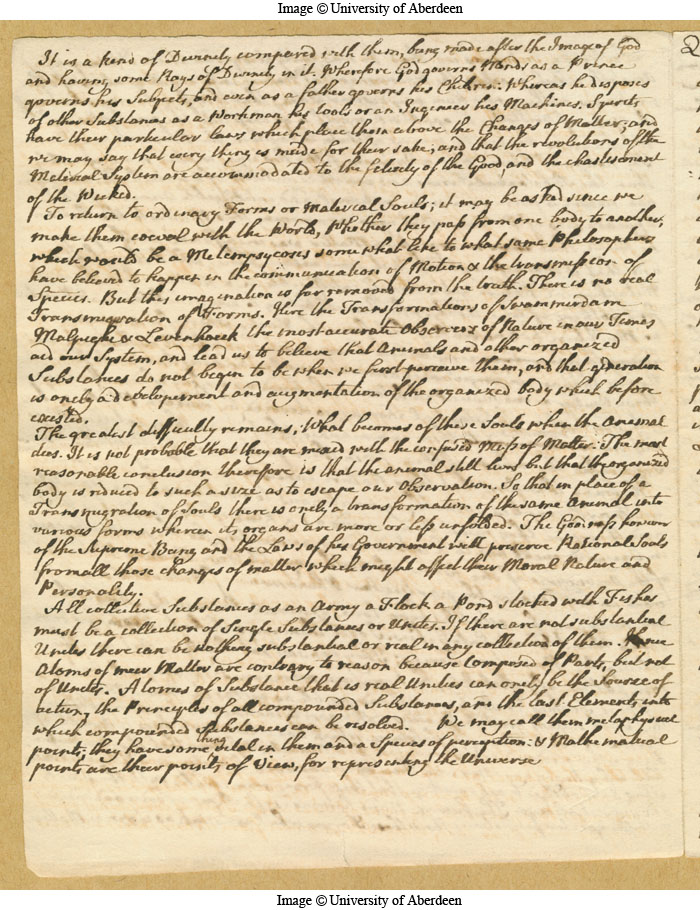 Image © University of Aberdeen
It is a kind of Divinity compared with them, being made after the Image of God
and having some Rays of Divinity in it. Wherefore God governs Minds as a Prince
governs his Subjects, and even as a father governs his Children: Whereas he disposes
of other Substances as a Workman his tools or an Ingeneer his Machines. Spirits
have their particular laws which place them above the Changes of Matter; and
we may say that every thing is made for their sake, and that the revolutions of the
Material System are accommodated to the felicity of the Good, and the chastisement
of the Wicked.
To return to ordinary Forms or Material Souls; it may be asked since we
make them coeval with the World, Whether they pass from one body to another,
which would be a Metempsycoses somewhat like to what some Philosophers
have believed to happen in the communication of Motion & the transmission of
Species. But this imagination is far removed from the truth. There is no real
Transmigration of Forms. Here the Transformations of Swammerdam
Malpighe & Levenhoeck the most accurate Observers of Nature in our Times
aid our System, and lead us to believe that Animals and other organized
Substances do not begin to be when we first perceive them, and that generation
is onely a developement and augmentation of the organized body which before
existed.
The greatest difficulty remains, What becomes of these Souls when the Animal
dies. It is not probable that they are mixed with the confused Mass of Matter: The most
reasonable conclusion therefore is that the animal still lives but that the organized
body is reduced to such a size as to escape our Observation. So that in place of a
Transmigration of Souls there is onely a transformation of the same Animal into
various forms wherein its organs are more or less unfolded. The Goodness however
of the Supreme Being and the Laws of his Government will preserve Rational Souls
from all those changes of matter which might affect their Moral Nature and
Personality.
All collective Substances as an Army a Flock a Pond stocked with Fishes
must be a collection of Single Substances or Unites. If there are not substantial
Unites there can be nothing substantial or real in any collection of them. Hence
Atoms of meer Matter are contrary to reason because Composed of Parts, but not
of Unites. Atomes of Substance that is real Unities can onely be the Source of
action, the Principles of all compounded Substances, are the last Elements into
which compounded Substances can be resolved. We may call them metaphysical
points; they have something vital in them and a Species of perception: & Mathematical
points are their points of View, for representing the Universe
Image © University of Aberdeen